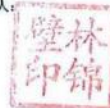 人:
林锦
壁印